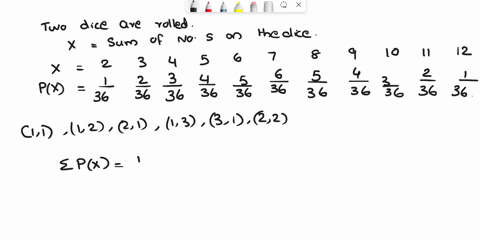 Two dice are rolled.
X = Sum of No. s on the dice.
X = 2 3 4 5 6 7 8 9 10 11 12
P(X) = 1/36 2/36 3/36 4/36 5/36 6/36 5/36 4/36 3/36 2/36 1/36
(1,1) , (1,2) , (2,1) , (1,3) , (3,1) , (2,2)
Σ P(X) = 1